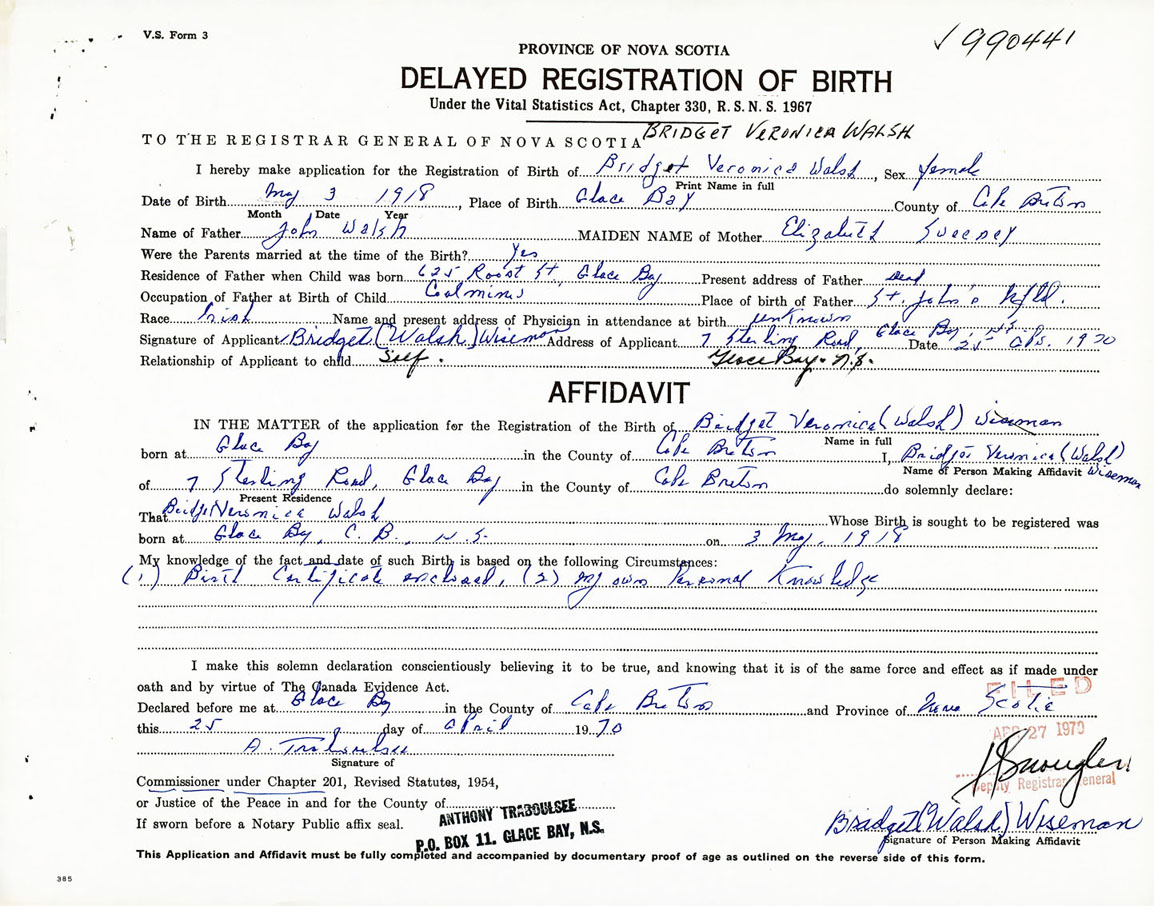 V.S. Form 3
√ 990441
PROVINCE OF NOVA SCOTIA
DELAYED REGISTRATION OF BIRTH
Under the Vital Statistics Act, Chapter 330, R. S. N. S. 1967
BRIDGET VERONICA WALSH
TO THE REGISTRAR GENERAL OF NOVA SCOTIA
I hereby make application for the Registration of Birth of Bridget Veronica Walsh, Sex female
Print Name in full
Date of Birth May 3 1918, Place of Birth Glace Bay County of Cape Breton
Month Date Year
Name of Father John Walsh MAIDEN NAME of Mother Elizabeth Sweeney
Were the Parents married at the time of the Birth? Yes
Residence of Father when Child was born 625 Roost St, Glace Bay Present address of Father Dead
Occupation of Father at Birth of Child Coalminer Place of birth of Father St. John's Nfld.
Race Irish Name and present address of Physician in attendance at birth unknown
Signature of Applicant Bridget (Walsh) Wiseman Address of Applicant 7 Sterling Road, Glace Bay, N.S. Date 25 Ap. 1970
Relationship of Applicant to child Self. Glace Bay. N.S.
AFFIDAVIT
IN THE MATTER of the application for the Registration of the Birth of Bridget Veronica (Walsh) Wiseman
Name in full
born at Glace Bay in the County of Cape Breton I, Bridget Veronica (Walsh) Wiseman
Name of Person Making Affidavit
of 7 Sterling Road, Glace Bay in the County of Cape Breton do solemnly declare:
Present Residence
That Bridget Veronica Walsh Whose Birth is sought to be registered was
born at Glace Bay, C. B., N. S. on 3 May, 1918
My knowledge of the fact and date of such Birth is based on the following Circumstances:
(1) Birth Certificate enclosed, (2) My own Personal Knowledge
I make this solemn declaration conscientiously believing it to be true, and knowing that it is of the same force and effect as if made under
oath and by virtue of The Canada Evidence Act.
FILED
Declared before me at Glace Bay in the County of Cape Breton and Province of Nova Scotia
this 25 day of April 1970
APR 27 1970
A. Traboulsee
Signature of
Commissioner under Chapter 201, Revised Statutes, 1954,
Deputy Registrar General
or Justice of the Peace in and for the County of
ANTHONY TRABOULSEE
If sworn before a Notary Public affix seal.
P.O. BOX 11. GLACE BAY, N.S.
Bridget (Walsh) Wiseman
Signature of Person Making Affidavit
This Application and Affidavit must be fully completed and accompanied by documentary proof of age as outlined on the reverse side of this form.
385